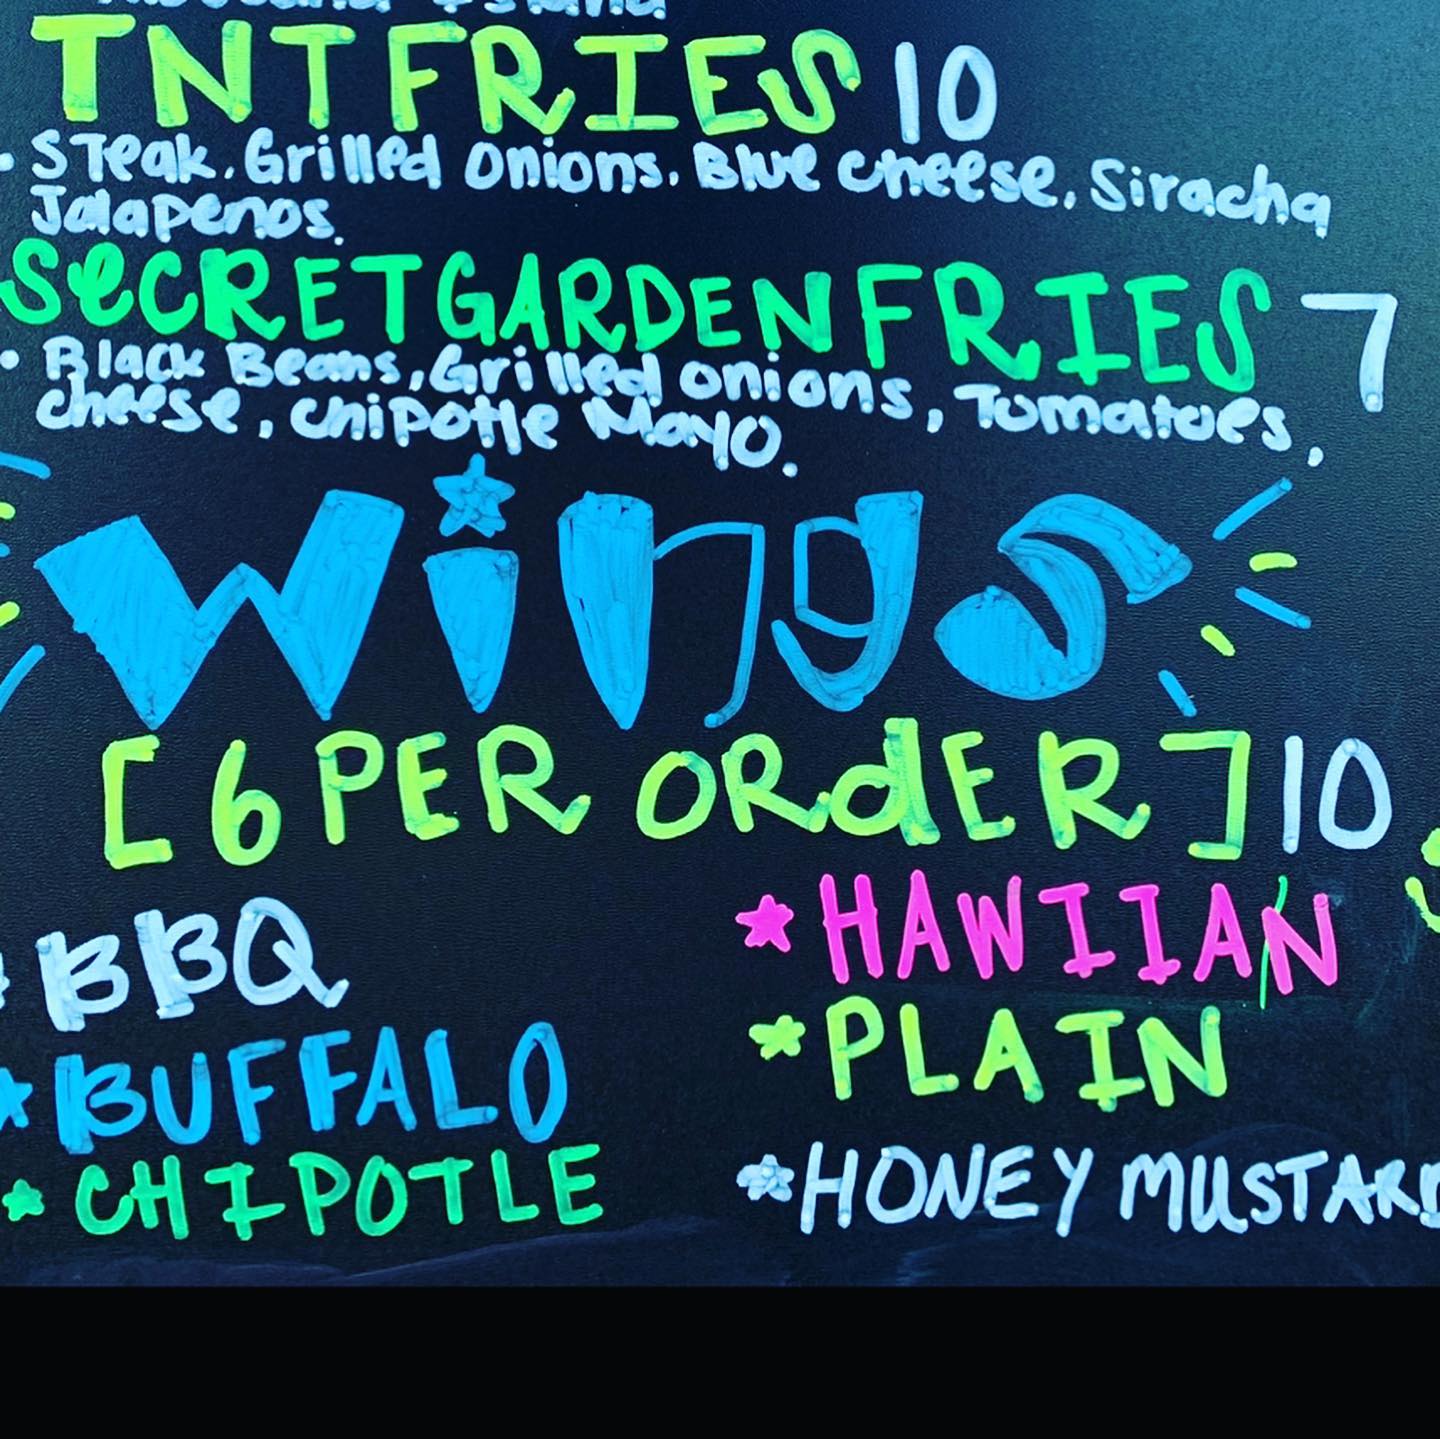 TNT FRIES 10
. STeak, Grilled Onions, Blue cheese, Siracha
Jalapenos.
SeCRET GARDEN FRIES 7
• Black Beans, Grilled onions, Tomatoes,
cheese, chipotle Mayo.
wings
[6 PER ORdER] 10
BBQ
*HAWIIAN
*BUFFALO
*PLAIN
*CHIPOTLE
*HONEY MUSTARD